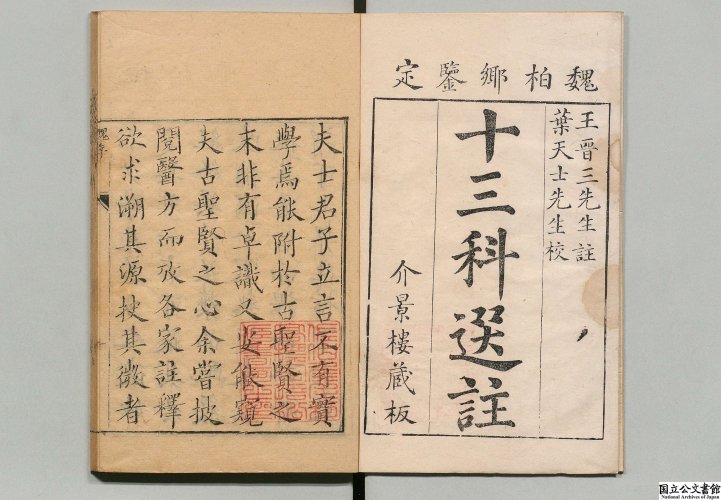 魏柏鄉鑒定
王晋三先生註
葉天士先生校
十三科選註
介景樓蔵板
夫士君子立言不有實
學焉能附於古聖賢之
末非有卓識又安能窺
夫古聖賢之心余嘗披
閱醫方而攷各家註釋
欲求溯其源抉其微者
魏序
国立公文書館
National Archives of Japan